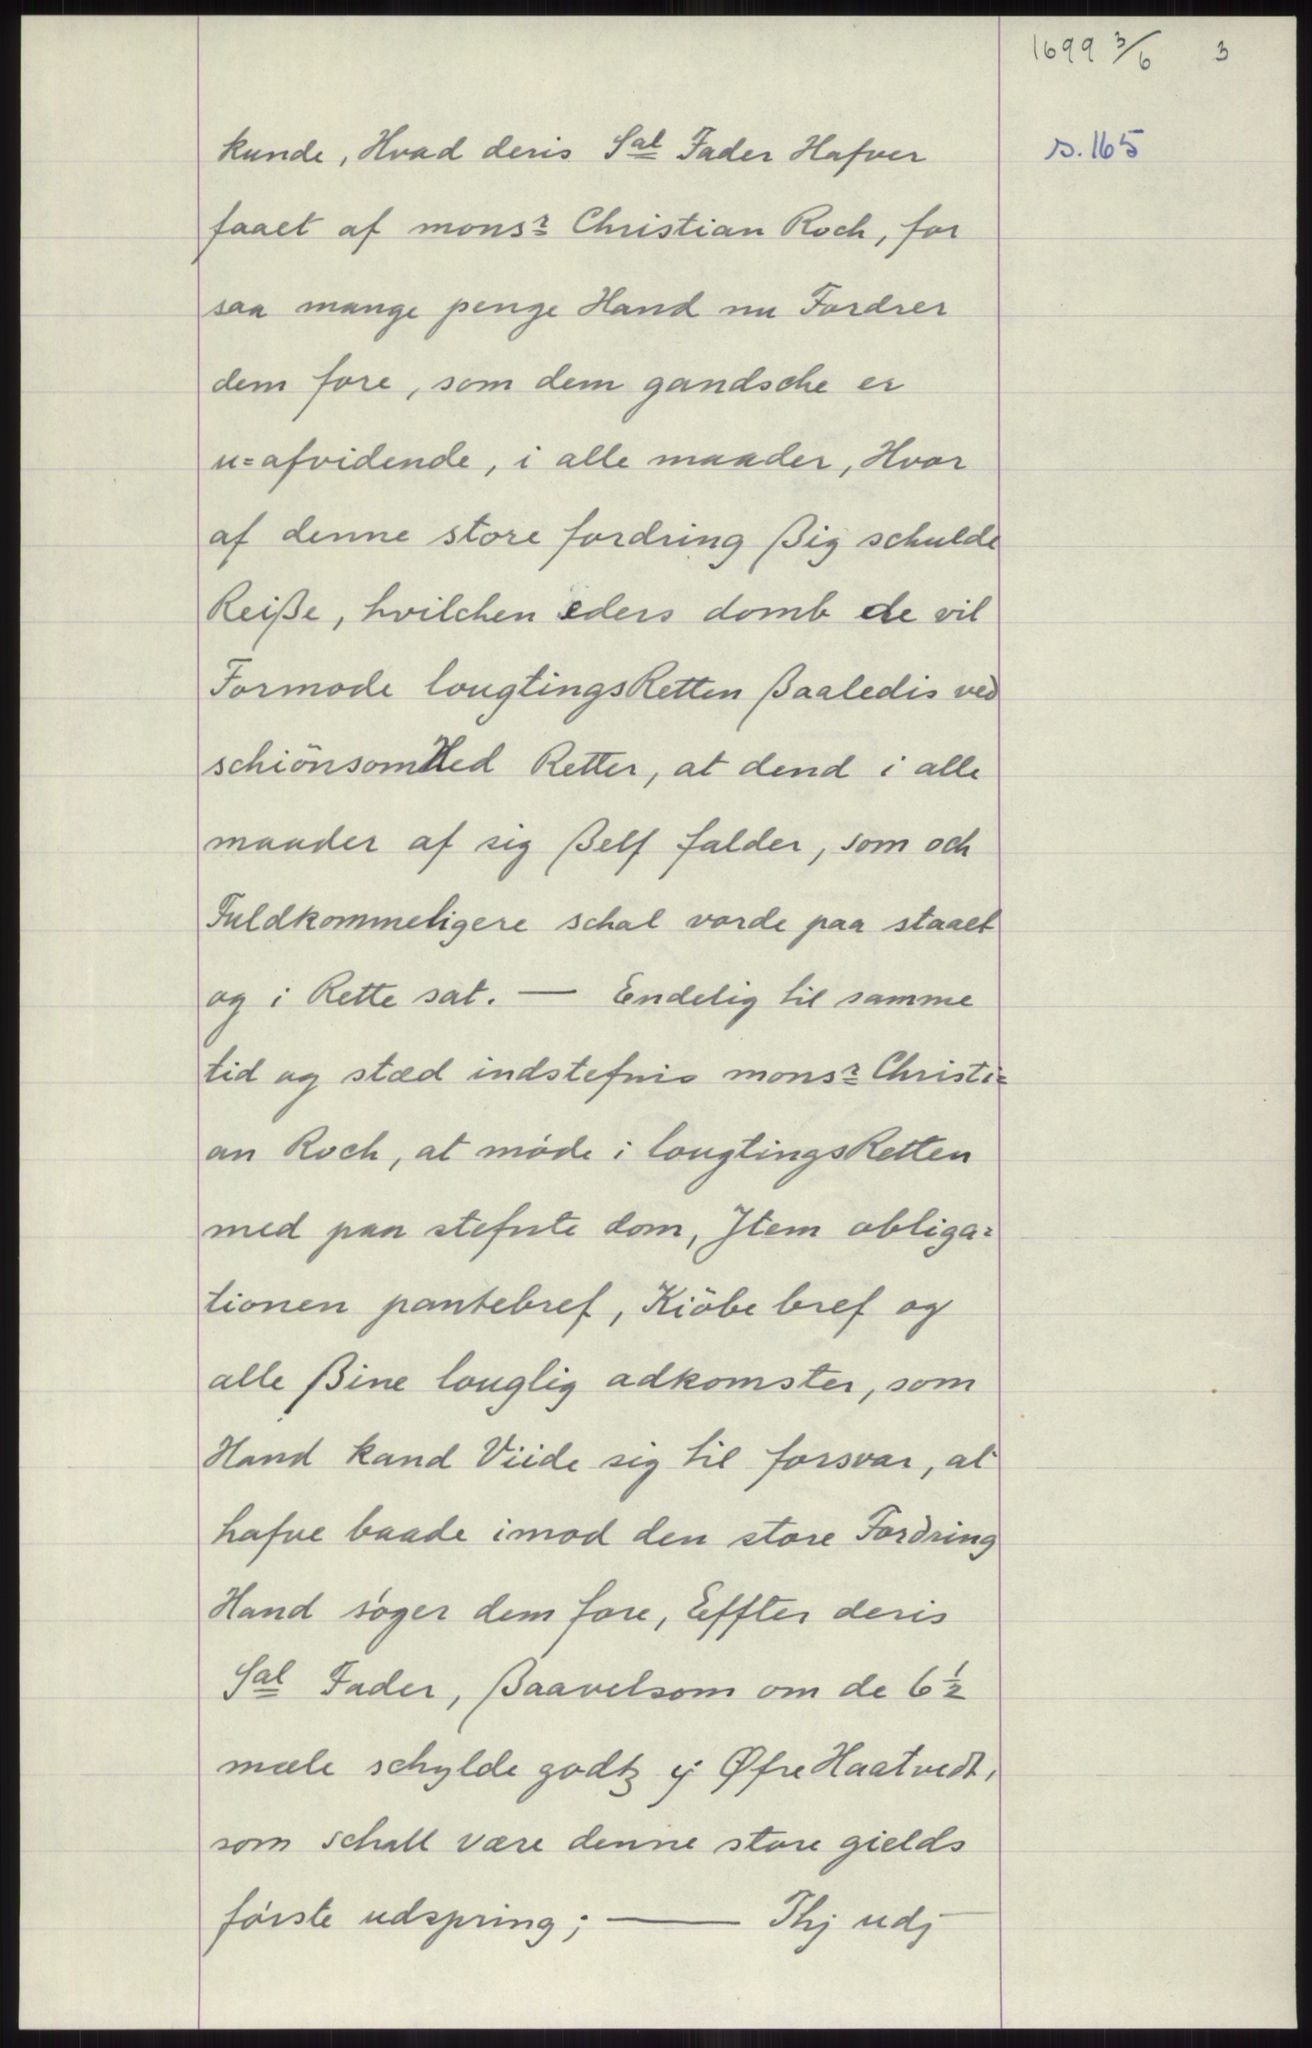 1699 3/6 3
kunde, Hvad deris Sal Fader Hafver
s. 165
faaet af monsr Christian Roch, for
saa mange penge Hand nu Fordrer
dem fore, som dem gandsche er
u=afvidende, i alle maader, Hvor
af denne store fordring ßig schulde
Reiße, hvilchen eders domb de vil
Formode lougtingsRetten ßaaledis ved
schiönsomHed Retter, at dend i alle
maader af sig ßelf falder, som och
Fuldkommeligere schal vorde paa staaet
og i Rette sat. — Endelig til samme
tid og stæd indstefnis monsr Christi=
an Roch, at möde i lougtingsRetten
med paa stefnte dom, Item obliga=
tionen pantebref, Kiöbe bref og
alle ßine louglig adkomster, som
Hand kand Viide sig til forsvar, at
hafve baade imod den store Fordring
Hand söger dem fore, Effter deris
Sal Fader, ßaavelsom om de 6 1/2
mæle schylde godtz ij Øfre Haatvedt,
som schall være denne store gields
förste udspring; — Thj udj